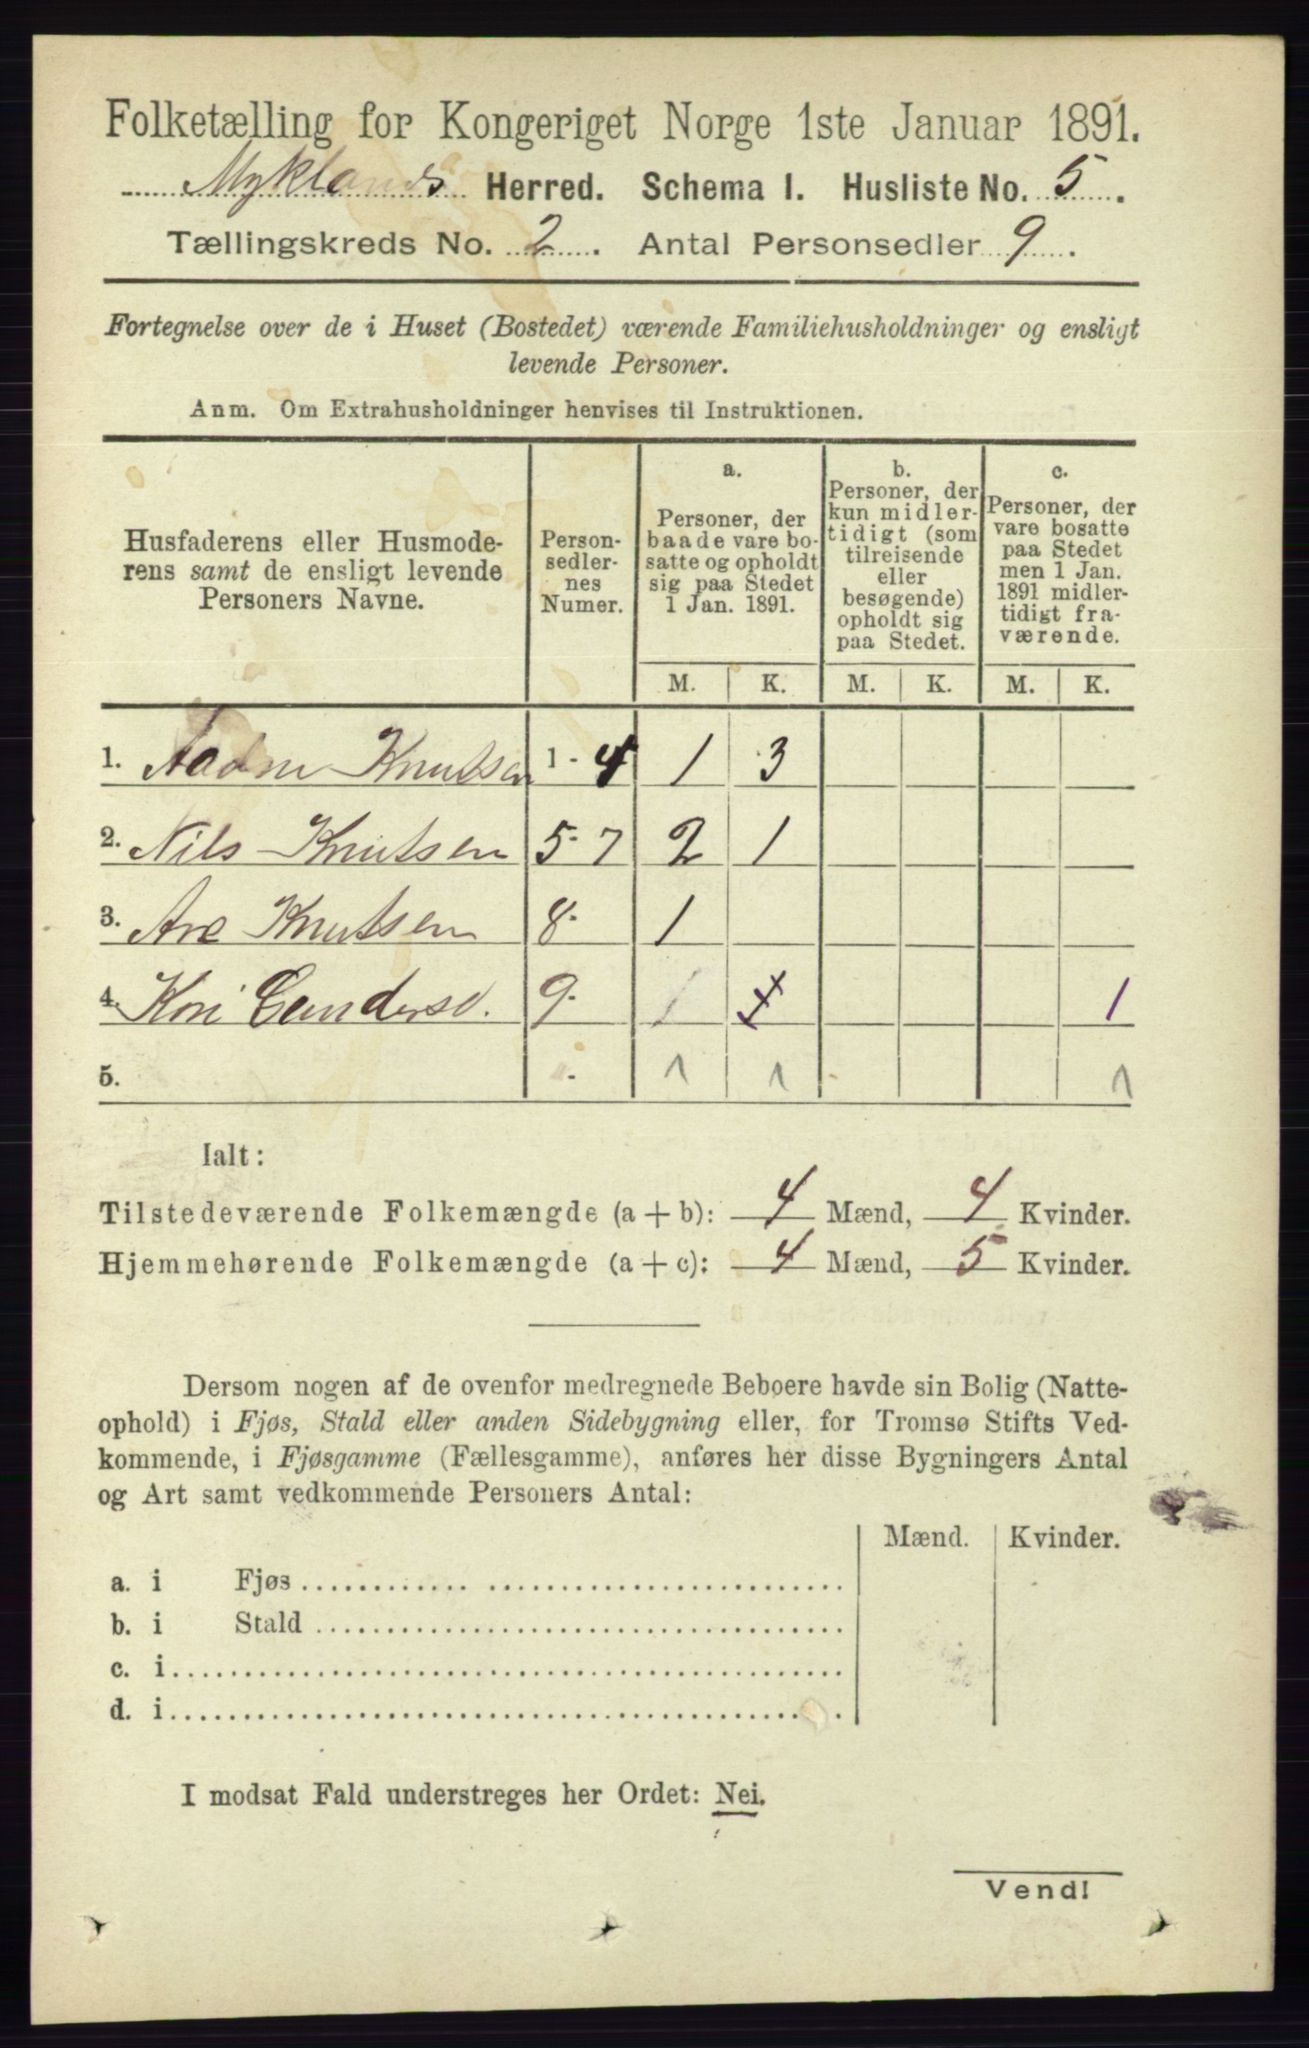 Folketælling for Kongeriget Norge 1ste Januar 1891.
Myklands Herred. Schema I. Husliste No. 5.
Tællingskreds No. 2. Antal Personsedler 9.
Fortegnelse over de i Huset (Bostedet) værende Familiehusholdninger og ensligt
levende Personer.
Anm. Om Extrahusholdninger henvises til Instruktionen.
Husfaderens eller Husmode-
rens samt de ensligt levende
Personers Navne.
Person-
sedler-
nes
Numer.
a.
Personer, der
baade vare bo-
satte og opholdt
sig paa Stedet
1 Jan. 1891.
b.
Personer, der
kun midler-
tidigt (som
tilreisende
eller
besøgende)
opholdt sig
paa Stedet.
c.
Personer, der
vare bosatte
paa Stedet
men 1 Jan.
1891 midler-
tidigt fra-
værende.
M. K. M. K. M. K.
1. Knutsen 1-4 1 3
2. Nils Knutsen 5-7 2 1
3. Are Knutsen 8- 1
4. 9- 1 1
5. - 1 1 1
Ialt:
Tilstedeværende Folkemængde (a + b): 4 Mænd, 4 Kvinder.
Hjemmehørende Folkemængde (a + c): 4 Mænd, 5 Kvinder.
Dersom nogen af de ovenfor medregnede Beboere havde sin Bolig (Natte-
ophold) i Fjøs, Stald eller anden Sidebygning eller, for Tromsø Stifts Ved-
kommende, i Fjøsgamme (Fællesgamme), anføres her disse Bygningers Antal
og Art samt vedkommende Personers Antal:
Mænd. Kvinder.
a. i Fjøs
b. i Stald
c. i
d. i
I modsat Fald understreges her Ordet: Nei.
Vend!